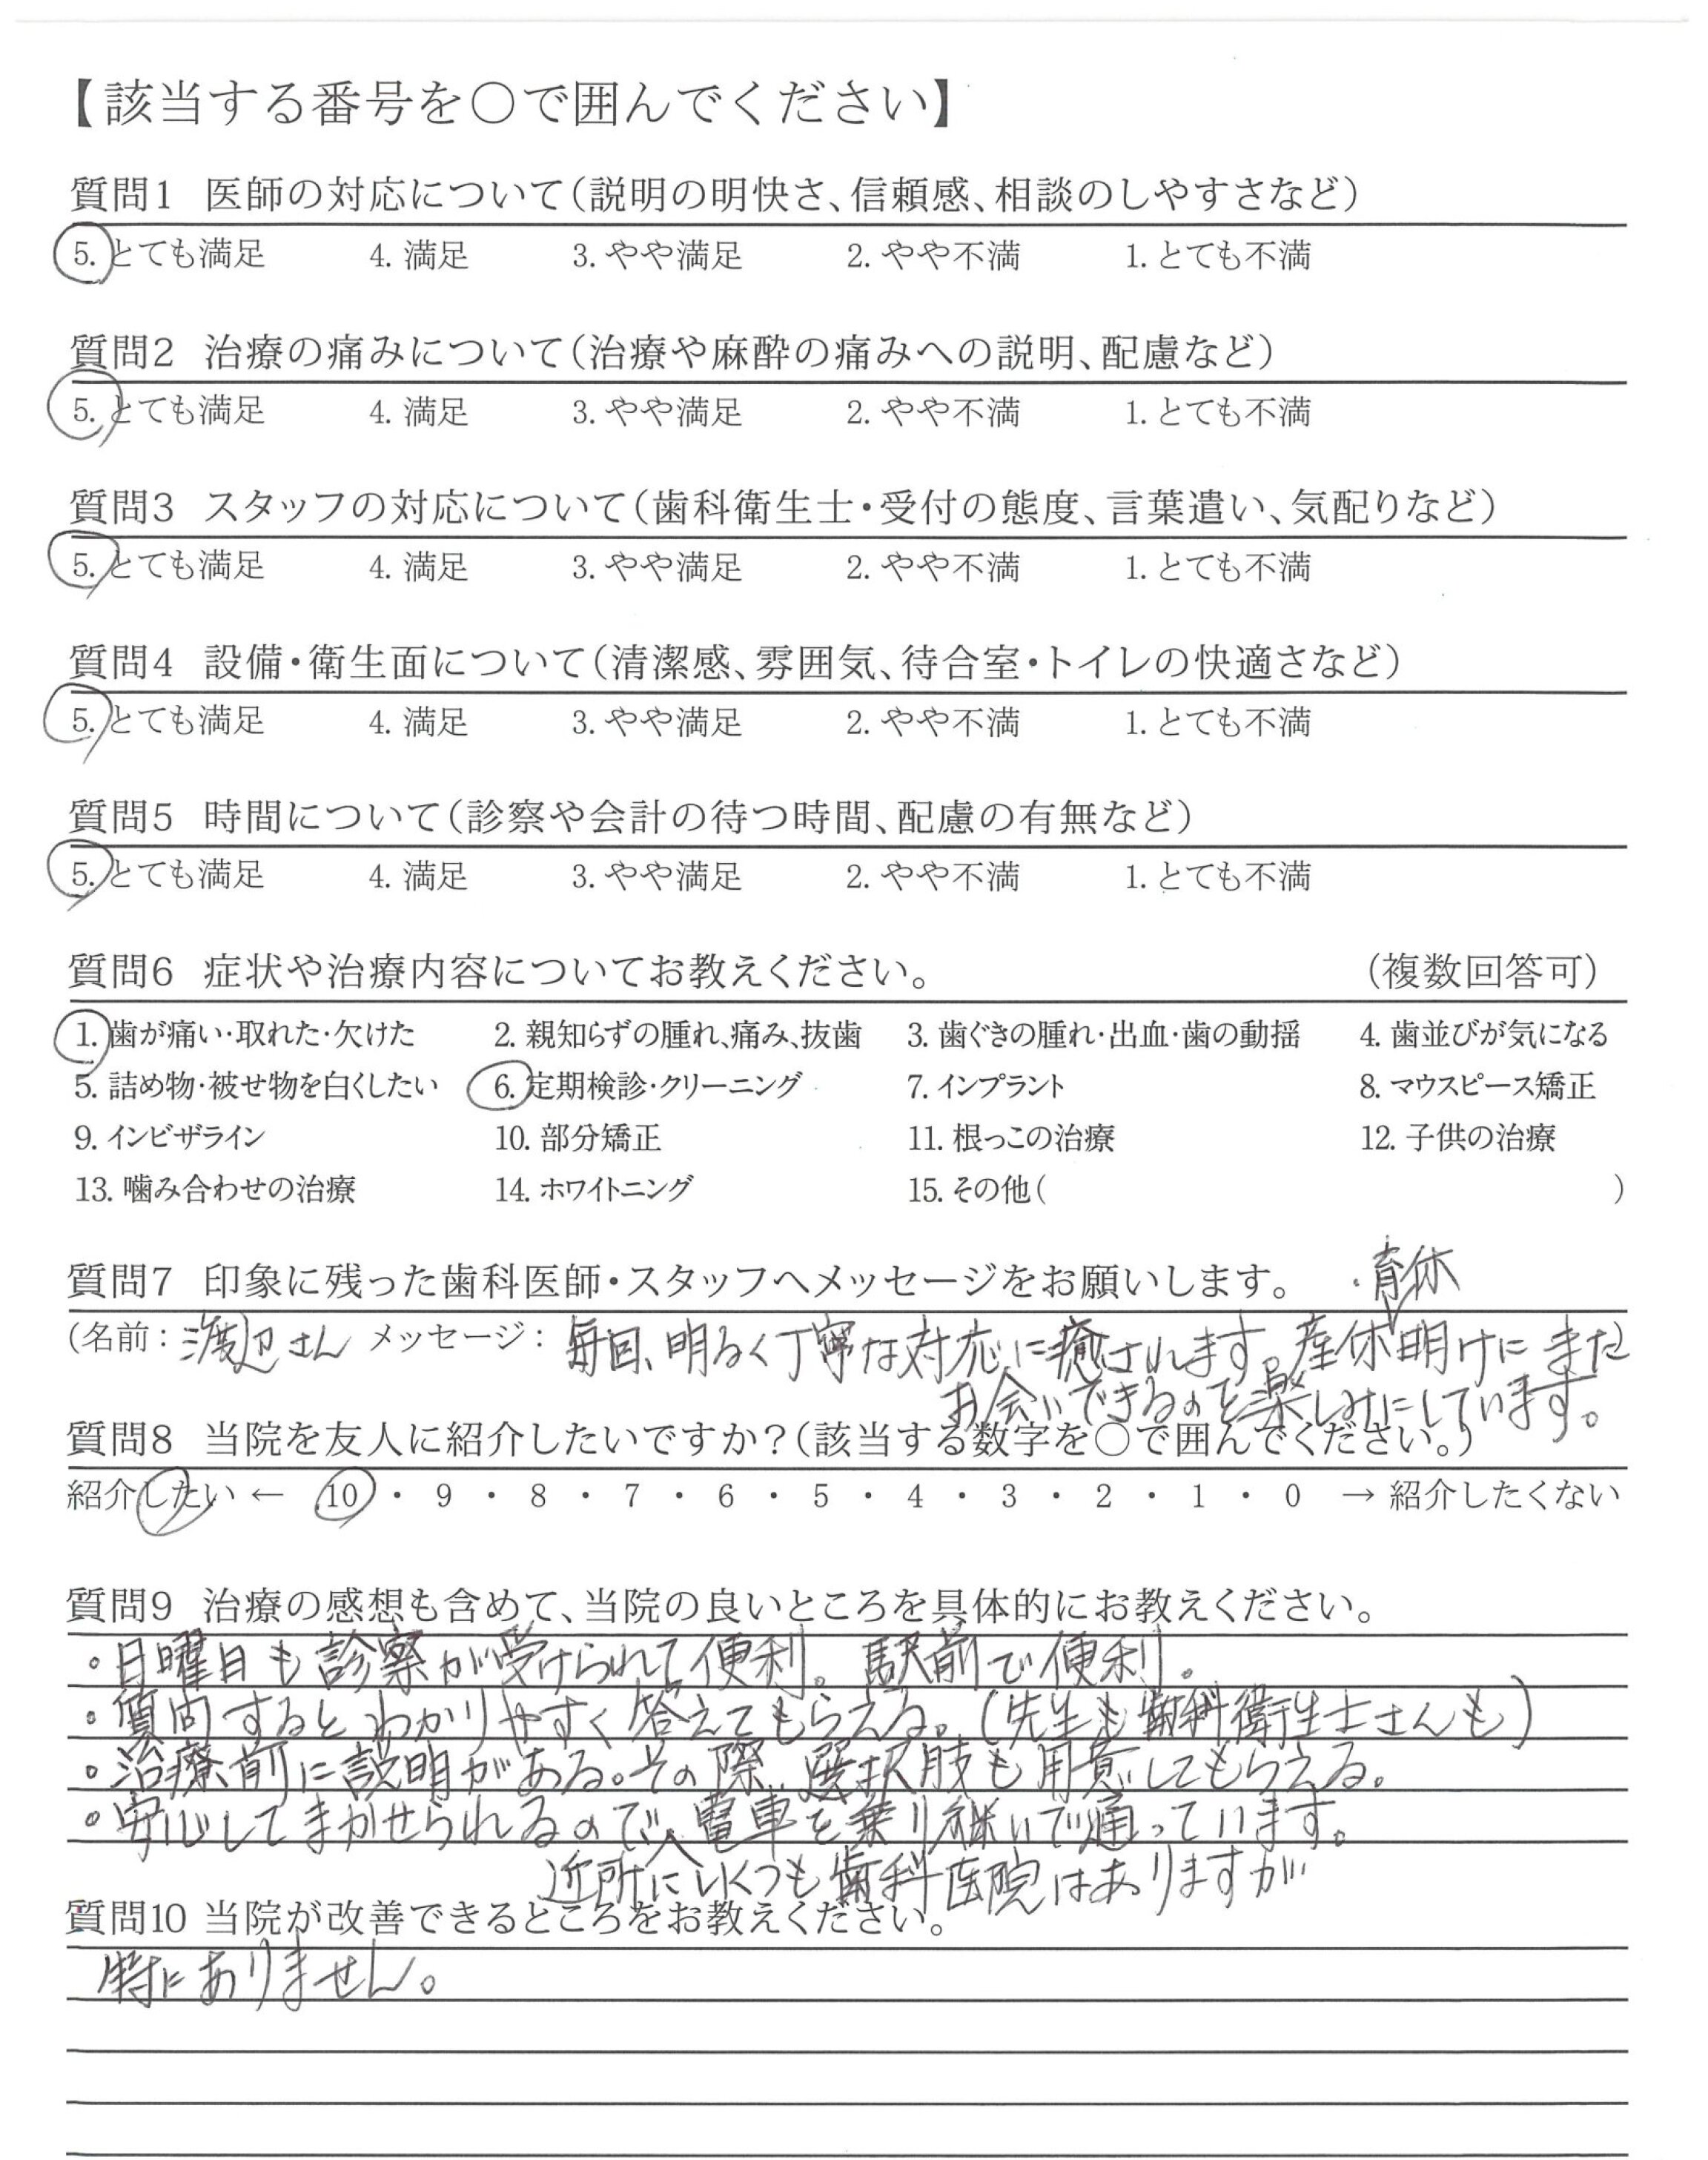 【該当する番号を○で囲んでください】
質問1 医師の対応について(説明の明快さ、信頼感、相談のしやすさなど)
5. とても満足 4. 満足 3. やや満足 2. やや不満 1. とても不満
質問2 治療の痛みについて(治療や麻酔の痛みへの説明、配慮など)
5. とても満足 4. 満足 3. やや満足 2. やや不満 1. とても不満
質問3 スタッフの対応について(歯科衛生士・受付の態度、言葉遣い、気配りなど)
5. とても満足 4. 満足 3. やや満足 2. やや不満 1. とても不満
質問4 設備・衛生面について(清潔感、雰囲気、待合室・トイレの快適さなど)
5. とても満足 4. 満足 3. やや満足 2. やや不満 1. とても不満
質問5 時間について(診察や会計の待つ時間、配慮の有無など)
5. とても満足 4. 満足 3. やや満足 2. やや不満 1. とても不満
質問6 症状や治療内容についてお教えください。 (複数回答可)
1. 歯が痛い・取れた・欠けた 2. 親知らずの腫れ、痛み、抜歯 3. 歯ぐきの腫れ・出血・歯の動揺 4. 歯並びが気になる
5. 詰め物・被せ物を白くしたい 6. 定期検診・クリーニング 7. インプラント 8. マウスピース矯正
9. インビザライン 10. 部分矯正 11. 根っこの治療 12. 子供の治療
13. 噛み合わせの治療 14. ホワイトニング 15. その他( )
質問7 印象に残った歯科医師・スタッフへメッセージをお願いします。
・育休
(名前: 渡辺さん メッセージ: 毎回、明るく丁寧な対応に癒されます。産休明けにまた
お会いできるのを楽しみにしています。
質問8 当院を友人に紹介したいですか?(該当する数字を○で囲んでください。)
紹介したい ← 10 ・ 9 ・ 8 ・ 7 ・ 6 ・ 5 ・ 4 ・ 3 ・ 2 ・ 1 ・ 0 → 紹介したくない
質問9 治療の感想も含めて、当院の良いところを具体的にお教えください。
。日曜日も診察が受けられて便利。駅前で便利。
。質問するとわかりやすく答えてもらえる。(先生も歯科衛生士さんも)
。治療前に説明がある。その際、選択肢も用意してもらえる。
。安心してまかせられるので、電車を乗り継いで通っています。
近所にいくつも歯科医院はありますが
質問10 当院が改善できるところをお教えください。
特にありません。